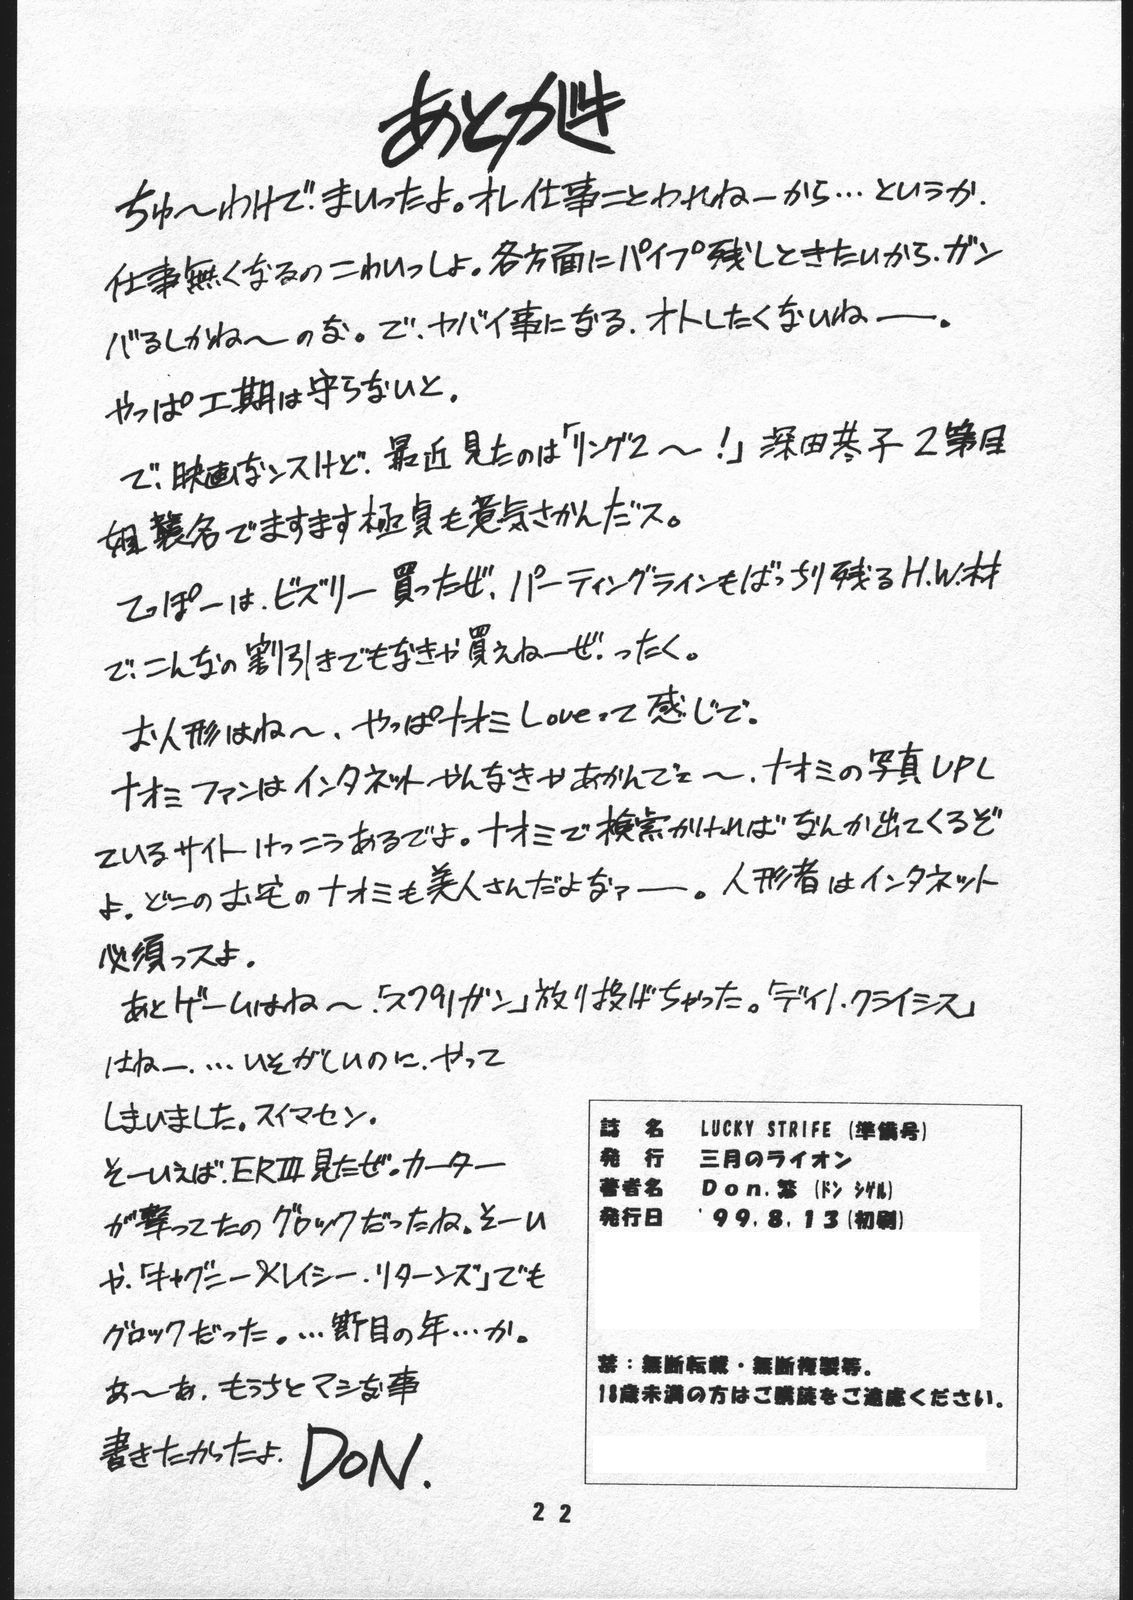 あとがき
ちゅ〜わけで、まいったよ。オレ仕事ことわれねーから…というか、
仕事無くなるのこわいっしょ。各方面にパイプ残しときたいから、ガン
バるしかね〜のな。で、ヤバイ事になる、オトしたくないねー。
やっぱ工期は守らないと。
で、映画なンスけど、最近見たのは「リング2〜!」深田恭子2
襲名でますます極貞も意気さかんだス。
てっぽーは、ビズリー買ったぜ、パーティングラインもばっちり残るH.W.材
で、こんなの割引きでもなきゃ買えねーぜ、ったく。
お人形はね〜、やっぱナオミLoveって感じで。
ナオミファンはインタネットやんなきゃあかんでェ〜、ナオミの写真UPし
ているサイトけっこうあるでよ。ナオミで検索かければなんか出てくるぞ
よ。どこのお宅のナオミも美人さんだよなァー。人形者はインタネット
必須っスよ。
あとゲームはね〜、「スプリガン」放り投げちゃった。「ディノ・クライシス」
はねー、…いそがしいのに、やって
しまいました。スイマセン。
そーいえば、ERⅢ見たぜ。カーター
が撃ってたのグロックだったね。そーい
や、「キャグニー&レイシー・リターンズ」でも
グロックだった。…断目の年…か。
あ〜あ、もうちとマシな事
書きたかったよ。DON.
誌 名 LUCKY STRIFE (準備号)
発 行 三月のライオン
著者名 Don.繁 (ドン シゲル)
発行日 '99.8.13(初刷)
禁:無断転載・無断複製等.
18歳未満の方はご購読をご遠慮ください.
22